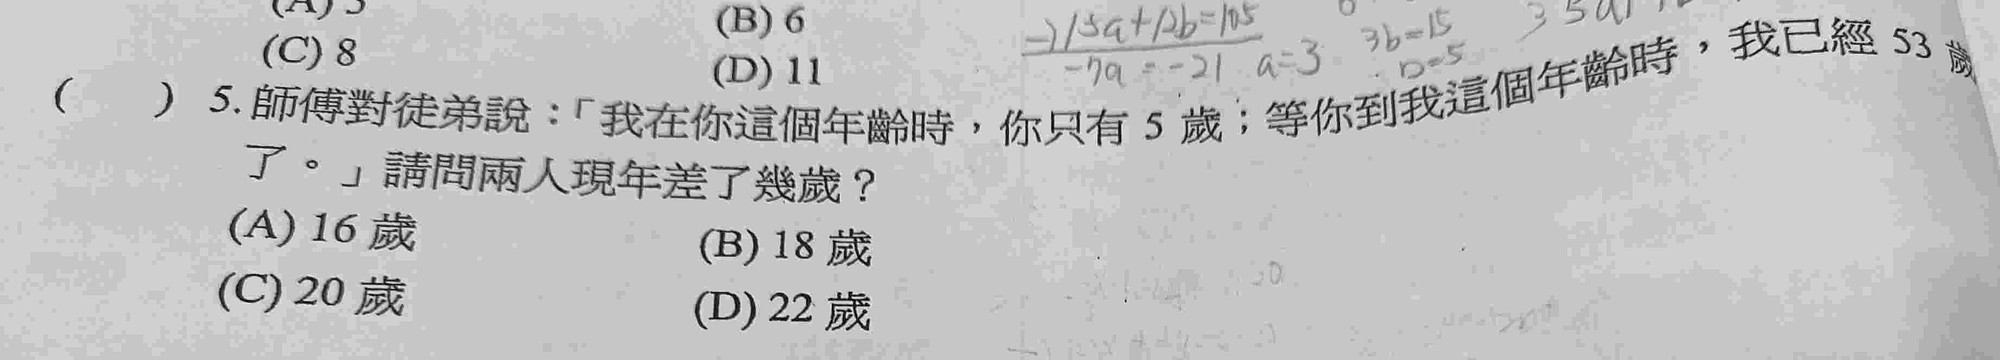 (B) 6
(C) 8
(D) 11
-)15a+12b=105
-7a=-21 a=3
3b=15
b=5
( ) 5. 師傅對徒弟說：「我在你這個年齡時，你只有 5 歲；等你到我這個年齡時，我已經 53 歲
了。」請問兩人現年差了幾歲？
(A) 16 歲
(B) 18 歲
(C) 20 歲
(D) 22 歲